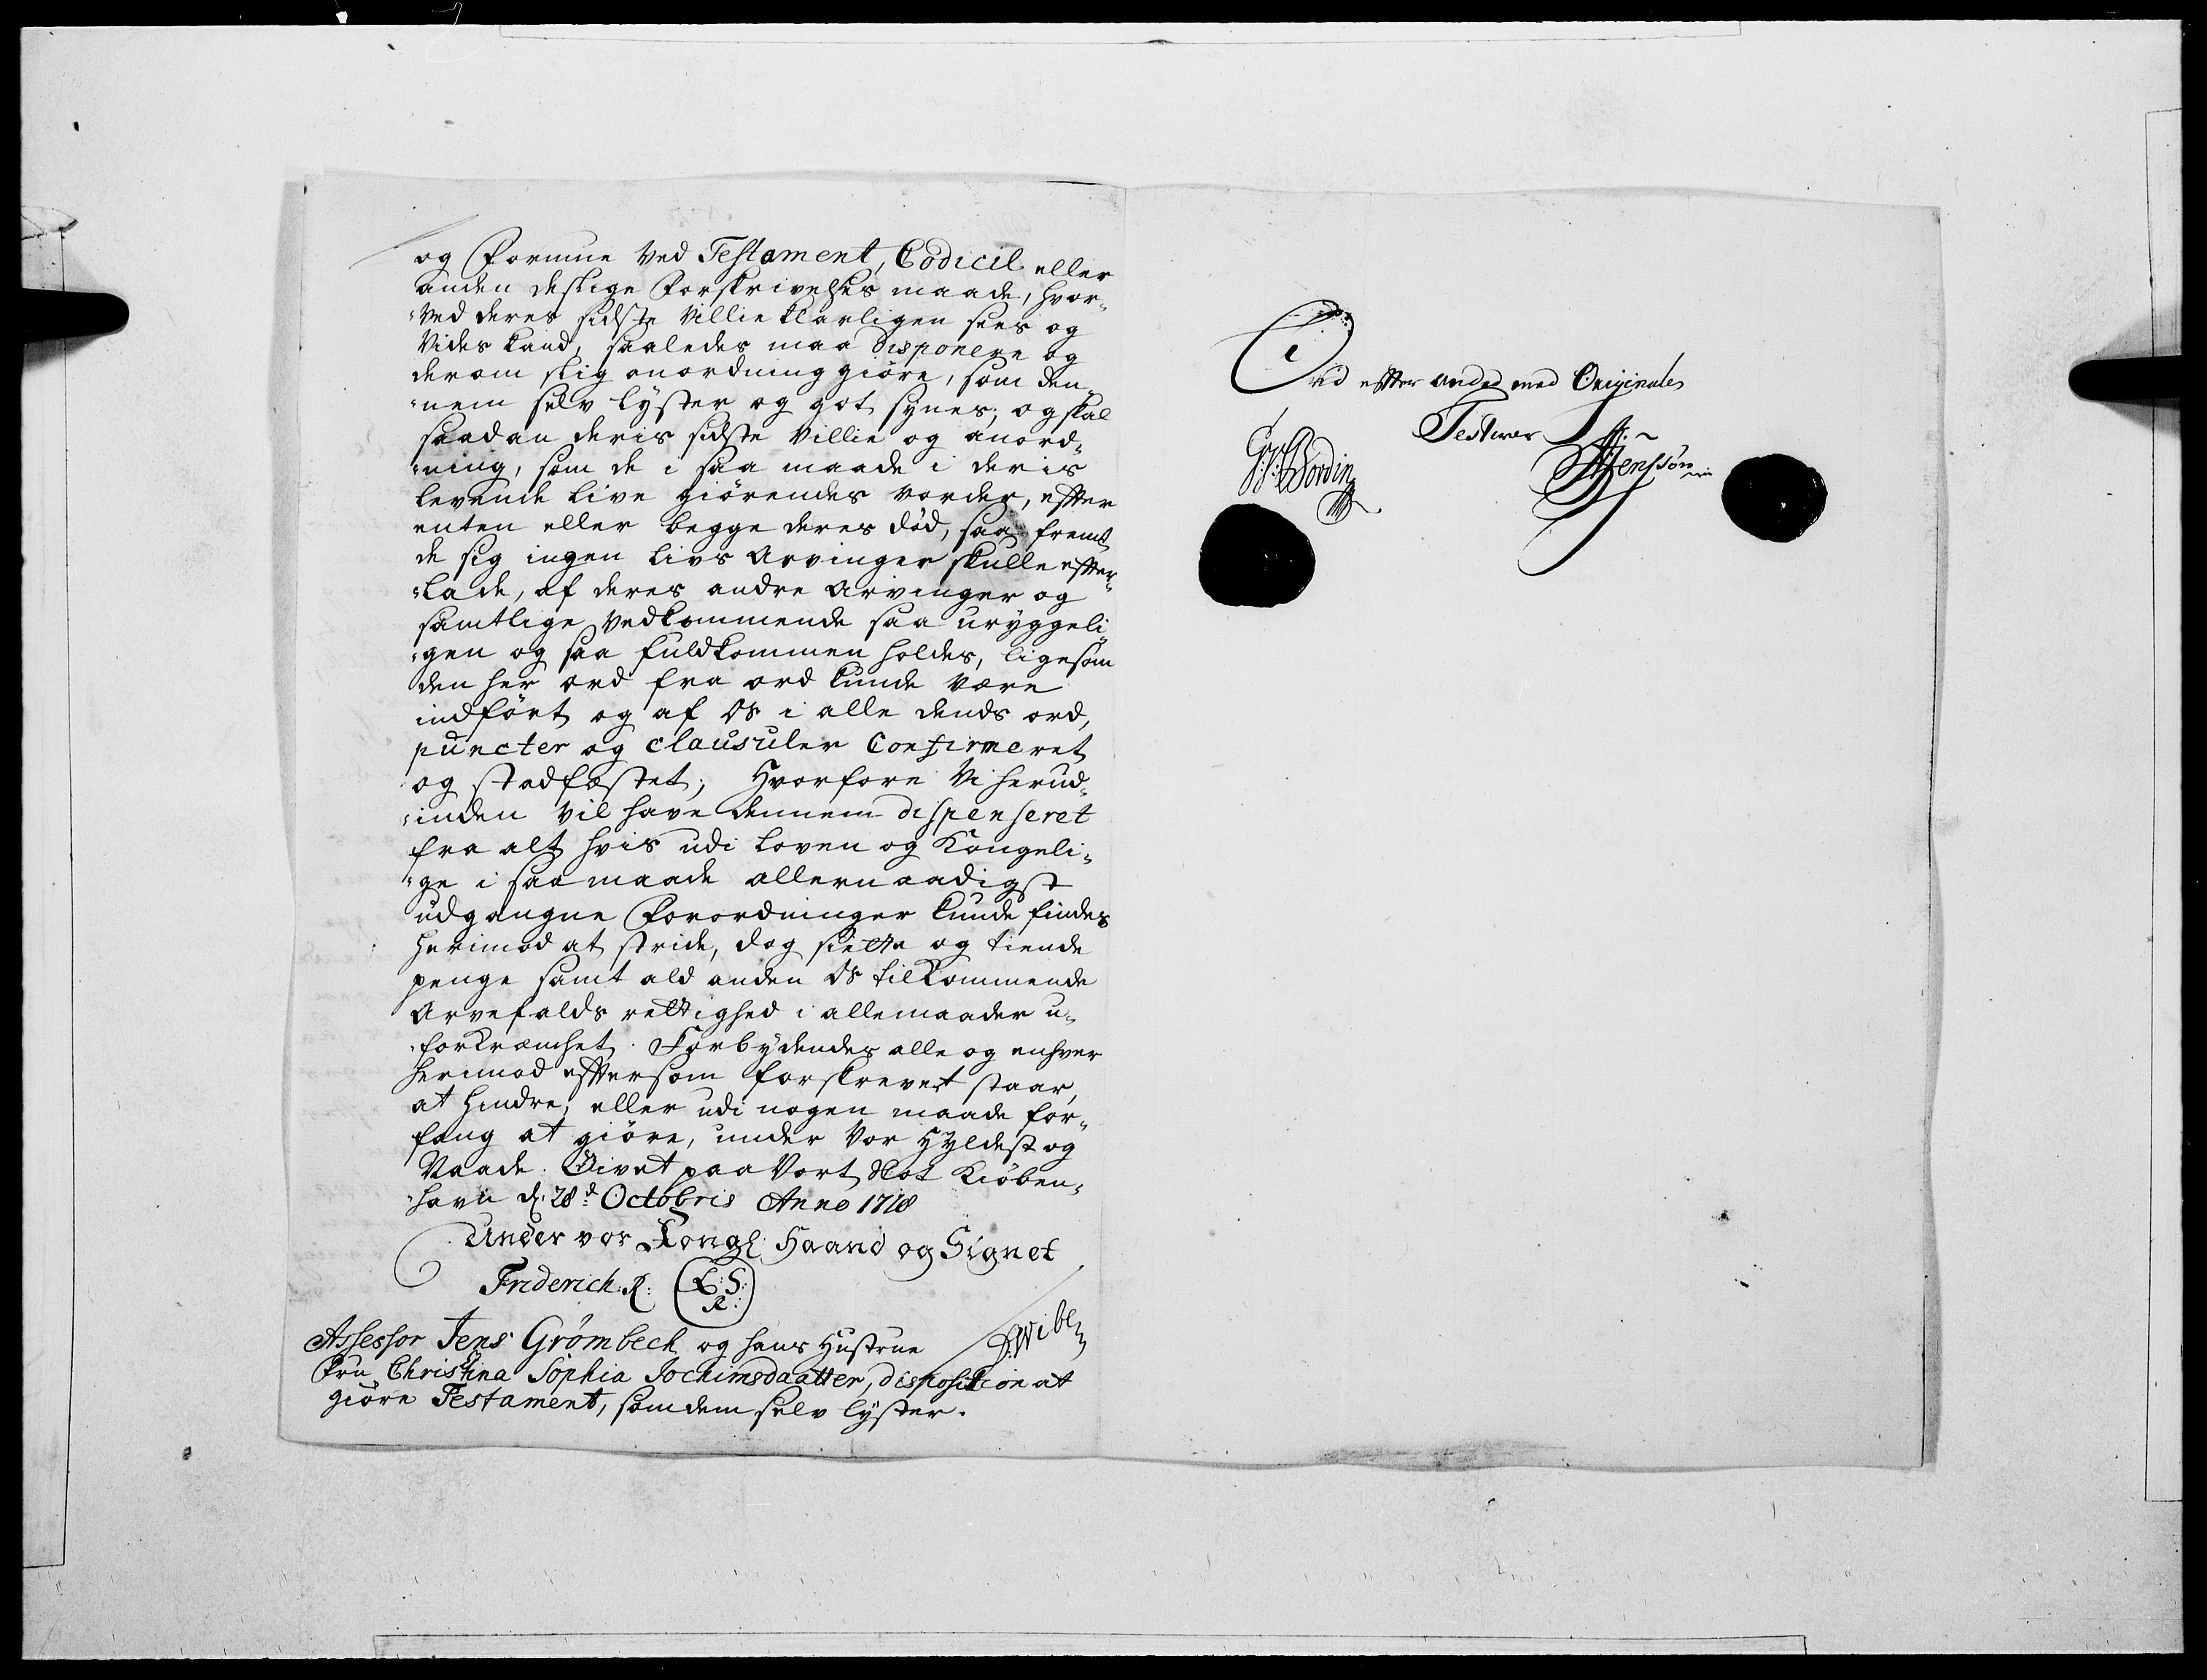 og Formue ved Testament, Codicil eller
anden deslige Forskrivelses maade, hvor-
-ved deres sidste Villie klarligen sees og
vides kand, saaledes maa disponere og
derom slig anordning giöre, som den-
-nem selv lyster og got synes; og skal
saadan deris sidste villie og anord-
-ning, som de i saa maade i deris
levende live giörendes vorder, efter
enten eller begge deres död, saa fremt
de sig ingen livs Arvinger skulle efter-
-lade, af deres andre Arvinger og
samtlige vedkommende saa uryggeli-
-gen og saa fuldkommen holdes, ligesom
den her ord fra ord kunde være
indfört og af Os i alle dends ord,
puncter og clausuler Confirmeret
og stadfæstet; Hvorfore Vi herud-
-inden vil have dennem dispenseret
fra alt hvis udi Loven og Kongeli-
-ge i saa maade allernaadigst
udgangne Forordninger kunde findes
herimod at stride, dog siette og tiende
penge samt ald anden Os tilkommende
Arvefalds rettighed i allemaader u-
-forkræncket. Forbydendes alle og enhver
herimod eftersom forskrevet staar,
at hindre, eller udi nogen maade for-
fang at giöre, under Vor Hyldest og
Naade. Givet paa Vort Slot Kiöben-
-havn d. 28.d Octobris Anno 1718
Under vor Kongl: Haand og Signet
Friderich R: L:S: R:
Assessor Jens Grömbech og hans Hustrue
Fru Christina Sophia Jochimsdaatter, disposition at
giöre Testament, som dem selv lyster.
Wibe
med Originalen
Testerer
G: J: Wordin
Jenssön